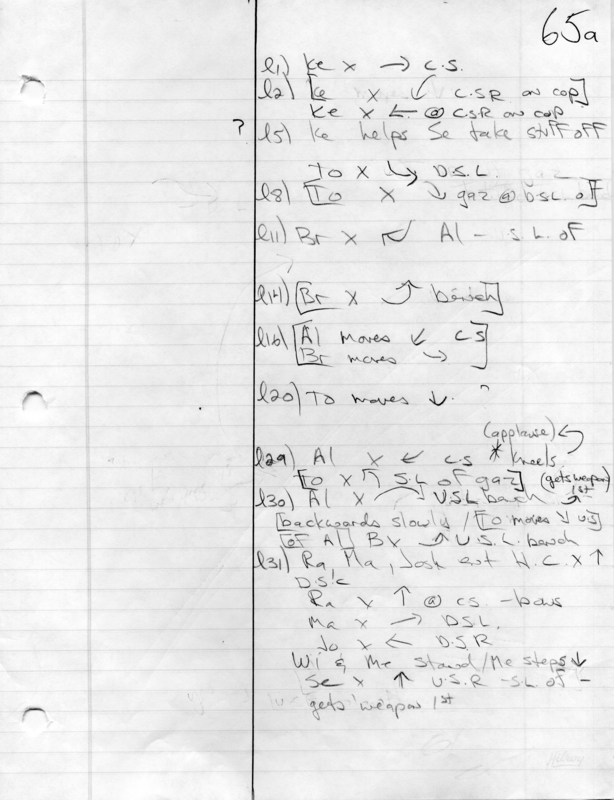 65a
l1) Ke x → C.S.
l2) [Ke x ↙ C.S.R on cop]
Ke x ← @ CSR on cop
?
l5) Ke helps Se take stuff off
To x ↳ D.S.L.
l8) [To x ↓ gaz @ D.S.L. of]
l11) Br x Al - S.L. of
l14) [Br x ⤴ bench]
l16) [Al moves ↙ CS
Br moves →]
l20) To moves ↓. ?
(applause)
l29) Al x ← CS * kneels
[To x ↰ S.L of gaz] (gets weapon 1st
l30) Al x U.S.L bench
[backwards slowly / [To moves ↓ U.S]
of Al] Bx ⤴ U.S.L. bench
l31) Ra, Ma, Josh ent H.C. x ↑
D.S.C
Ra x ↑ @ CS. - bows
Ma x → D.S.L.
Jo x ← D.S.R
Wi & Me stand/Me steps ↓
Se x ↑ U.S.R - S.L of -
gets weapon 1st
Hilroy